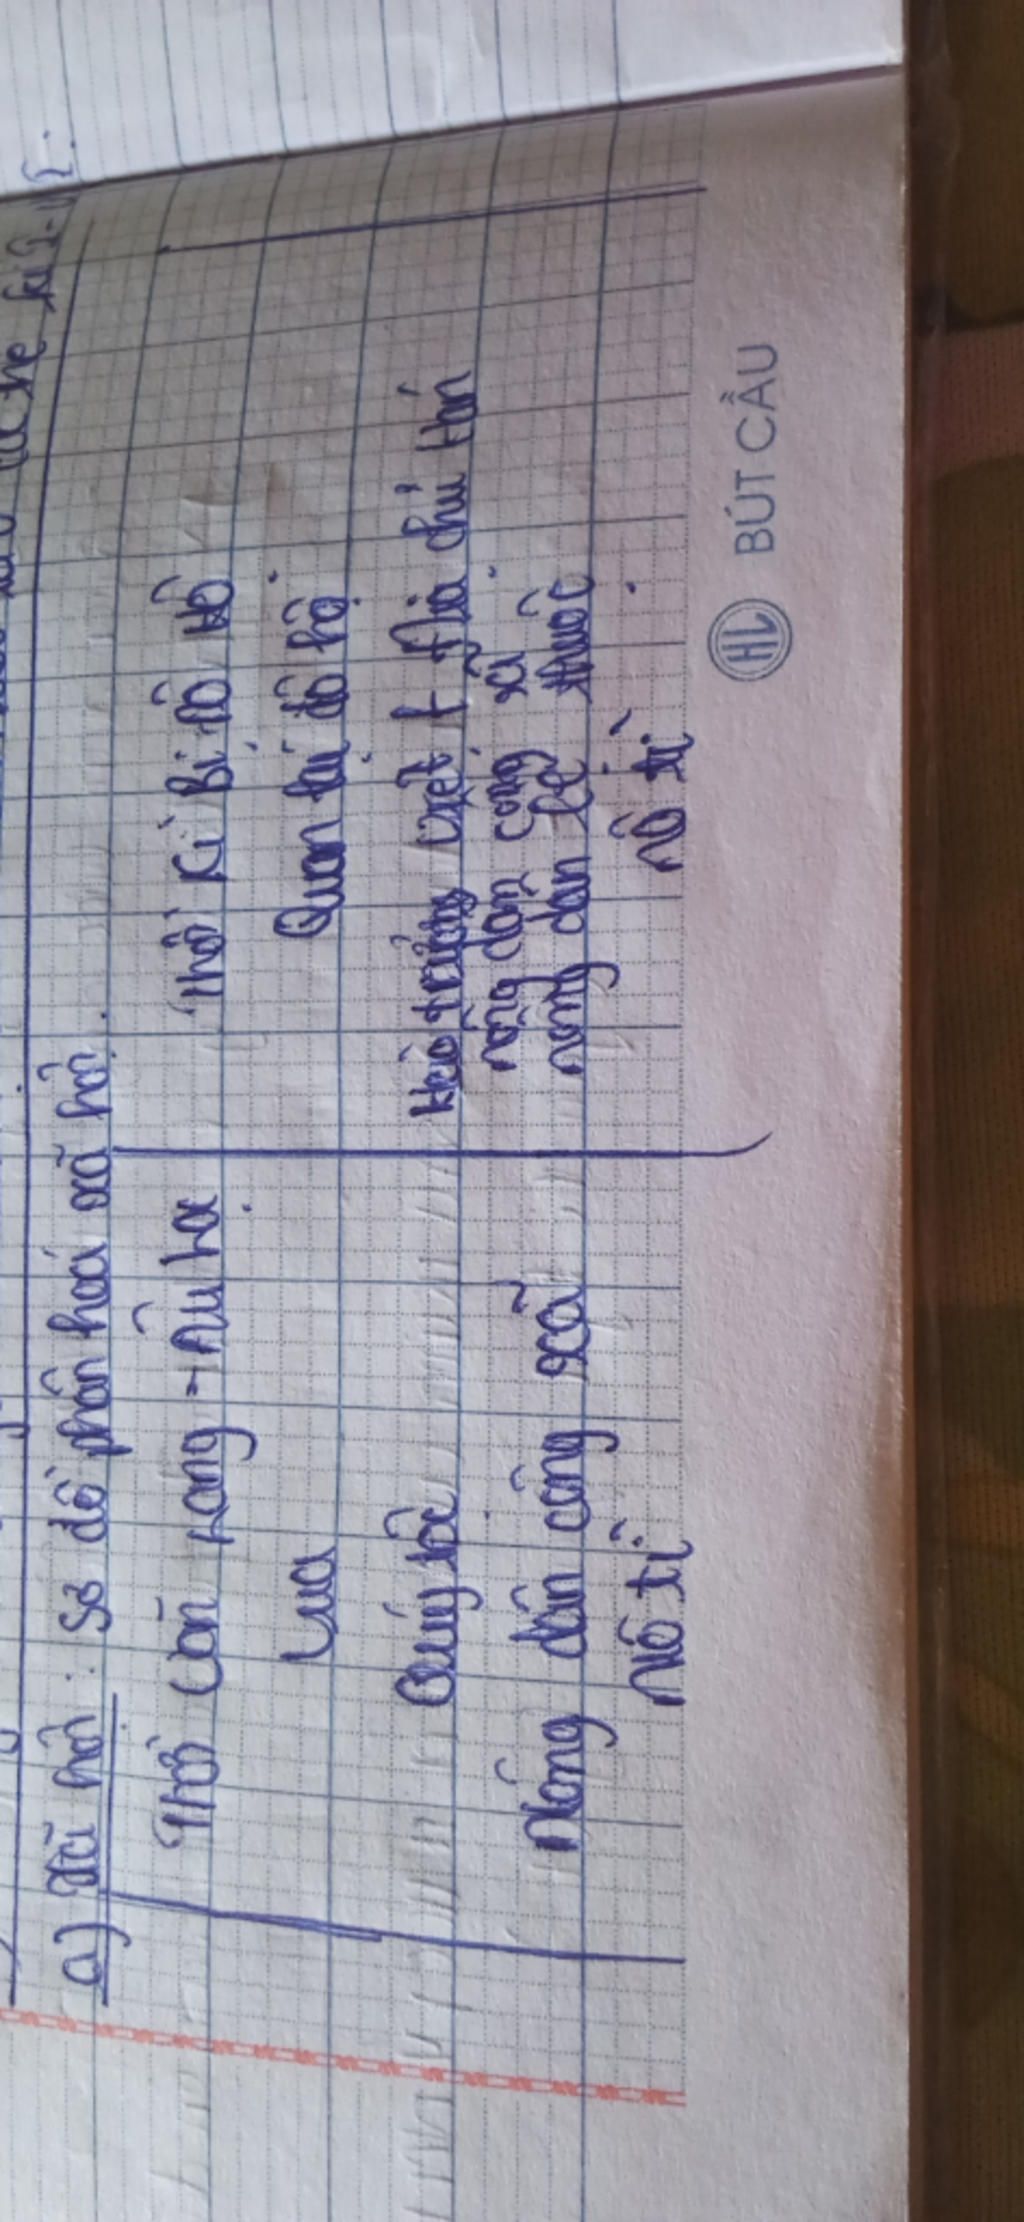 thế kỉ I-VI.
a) Xã hội: Sơ đồ phân hoá xã hội.
Thời Văn Lang - Âu Lạc
Thời Kì Bị đô Hộ
Vua
Quan lại đô hộ
Quý tộc
Hào trưởng việt + địa chủ Hán
Nông dân công xã
nông dân công xã
nông dân lệ thuộc
Nô tì
nô tì
HL BÚT CẦU